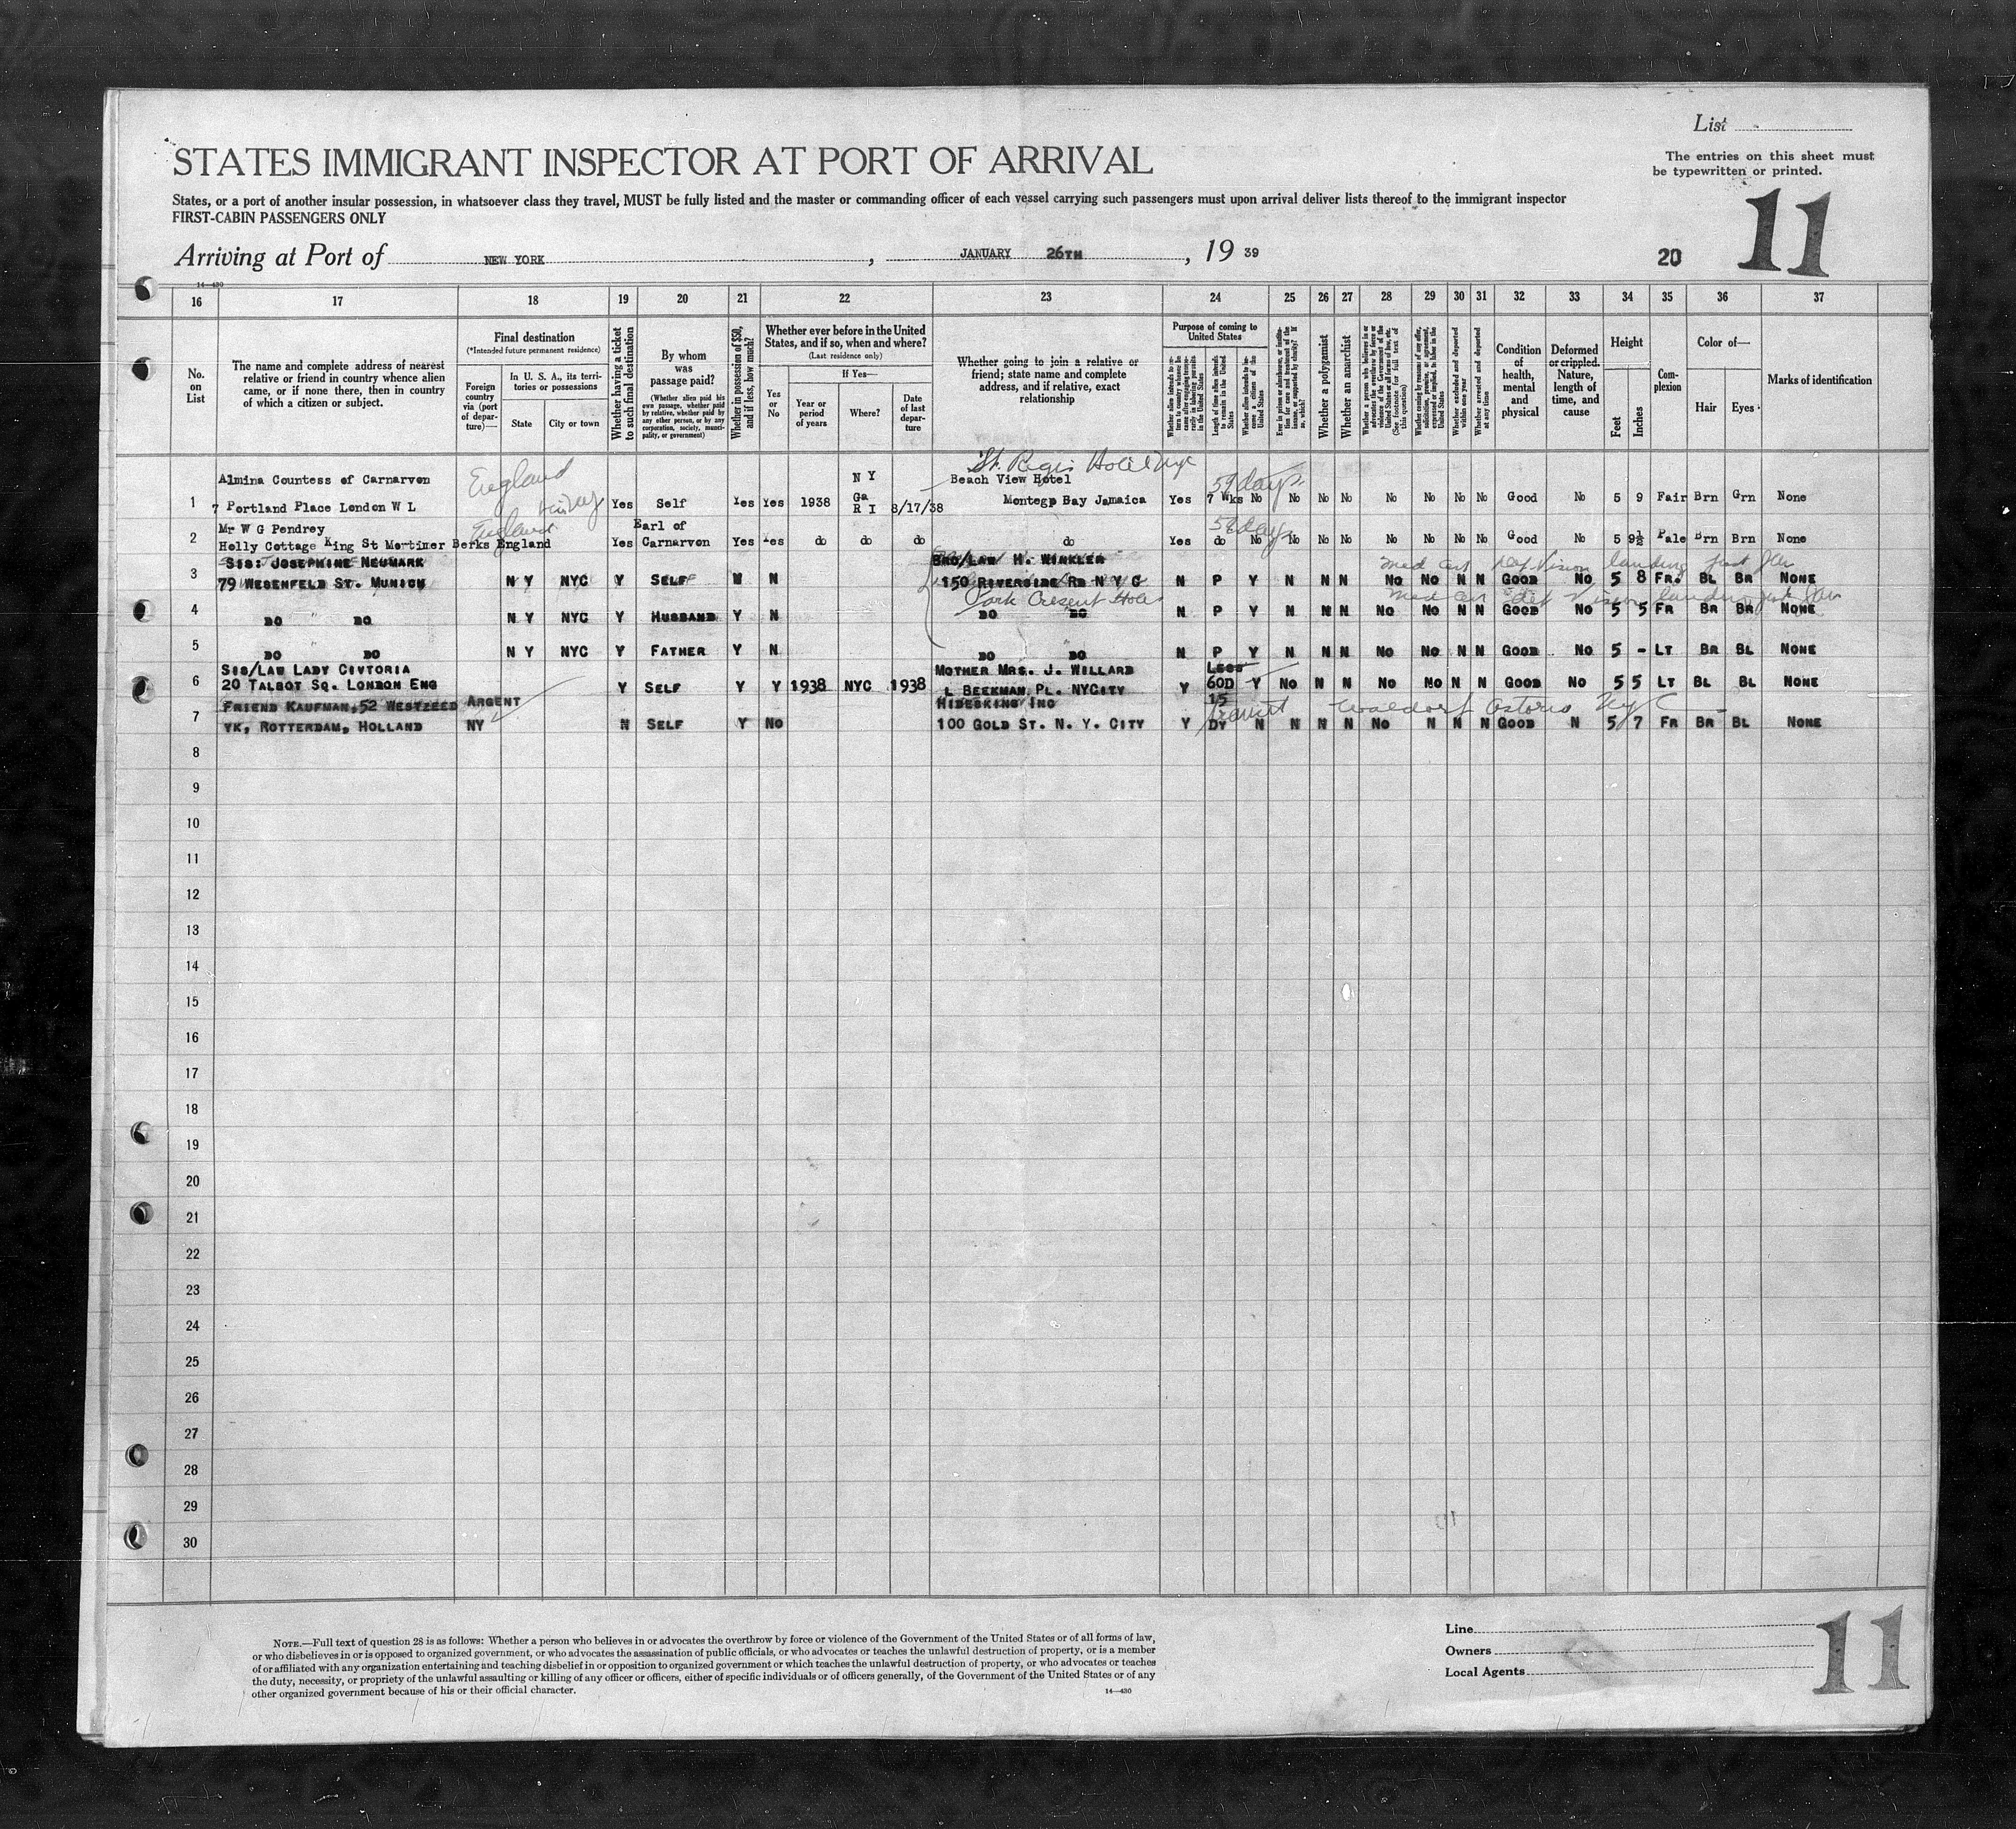 List
The entries on this sheet must
be typewritten or printed.
STATES IMMIGRANT INSPECTOR AT PORT OF ARRIVAL
11
States, or a port of another insular possession, in whatsoever class they travel, MUST be fully listed and the master or commanding officer of each vessel carrying such passengers must upon arrival deliver lists thereof to the immigrant inspector
FIRST-CABIN PASSENGERS ONLY
Arriving at Port of NEW YORK, JANUARY 26TH, 19 39
20
14—430
16 17 18 19 20 21 22 23 24 25 26 27 28 29 30 31 32 33 34 35 36 37
No. on List
The name and complete address of nearest
relative or friend in country whence alien
came, or if none there, then in country
of which a citizen or subject.
Final destination
(*Intended future permanent residence)
Foreign country via (port of departure)—
In U. S. A., its territories or possessions
State City or town
Whether having a ticket to such final destination
By whom was passage paid?
(Whether alien paid his own passage, whether paid by relative, whether paid by any other person, or by any corporation, society, municipality, or government)
Whether in possession of $50, and if less, how much?
Whether ever before in the United
States, and if so, when and where?
(Last residence only)
Yes or No
If Yes—
Year or period of years
Where?
Date of last departure
Whether going to join a relative or
friend; state name and complete
address, and if relative, exact
relationship
Purpose of coming to
United States
Length of time alien intends to remain in the United States
Whether alien intends to become a citizen of the United States
Whether a polygamist
Whether an anarchist
Whether excluded and deported within one year
Whether arrested and deported at any time
Condition of health, mental and physical
Deformed or crippled. Nature, length of time, and cause
Height
Feet Inches
Complexion
Color of—
Hair Eyes
Marks of identification
St. Regis Hotel Nyc
Almina Countess of Carnarvon England N Y Beach View Hotel 59 days
1 7 Portland Place London W L Yes Self Yes Yes 1938 Ga R I 8/17/38 Montego Bay Jamaica Yes 7 Wks No No No No No No No No Good No 5 9 Fair Brn Grn None
Mr W G Pendrey England Earl of
2 Holly Cottage King St Mortimer Berks England Yes Carnarvon Yes Yes do do do do Yes do No No No No No No No No Good No 5 9½ Pale Brn Brn None
Sis: Josephine Neumark Bro/Law H. Winkler
3 79 Wesenfeld St. Munich N Y NYC Y Self N 150 Riverside Rd N Y C N P Y N N N No No N N Good No 5 8 Fr. Bl Br None
Park Cresent Hotel
4 Do Do N Y NYC Y Husband Y N Do Do N P Y N N N No No N N Good No 5 5 Fr Br Br None
5 Do Do N Y NYC Y Father Y N Do Do N P Y N N N No No N N Good No 5 - Lt Br Bl None
Sis/Law Lady Civtoria Mother Mrs. J. Willard Less
6 20 Talbot Sq. London Eng Y Self Y Y 1938 NYC 1938 1 Beekman Pl. NYCity Y 60D Y No N N No No N N Good No 5 5 Lt Bl Bl None
Friend Kaufman, 52 Westzeed Argent Hideskins Inc 15 transit Waldorf Astoria NyC
7 yk, Rotterdam, Holland NY N Self Y No 100 Gold St. N. Y. City Y Dy N N N N No N N N Good N 5 7 Fr Br Bl None
8
9
10
11
12
13
14
15
16
17
18
19
20
21
22
23
24
25
26
27
28
29
30
NOTE.—Full text of question 28 is as follows: Whether a person who believes in or advocates the overthrow by force or violence of the Government of the United States or of all forms of law,
or who disbelieves in or is opposed to organized government, or who advocates the assassination of public officials, or who advocates or teaches the unlawful destruction of property, or is a member
of or affiliated with any organization entertaining and teaching disbelief in or opposition to organized government or which teaches the unlawful destruction of property, or who advocates or teaches
the duty, necessity, or propriety of the unlawful assaulting or killing of any officer or officers, either of specific individuals or of officers generally, of the Government of the United States or of any
other organized government because of his or their official character.
14—430
Line
Owners
Local Agents
11